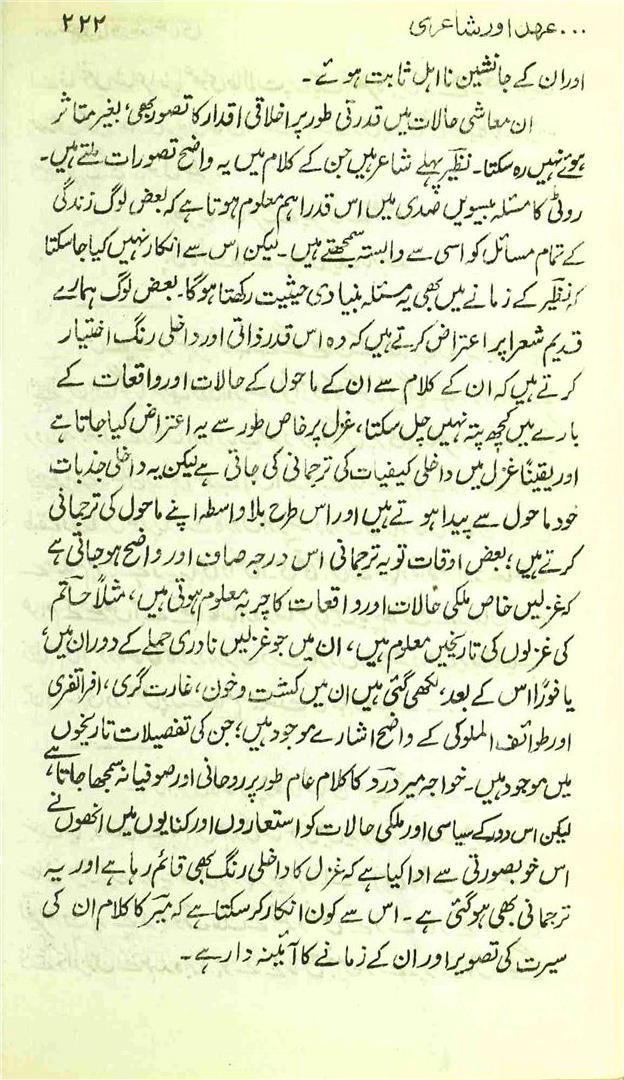 ... عہد اور شاعری ۲۲۲
اور ان کے جانشین نااہل ثابت ہوئے۔
ان معاشی حالات میں قدرتی طور پر اخلاقی اقدار کا تصور بھی، بغیر متاثر
ہوئے نہیں رہ سکتا۔ نظیرؔ پہلے شاعر ہیں جن کے کلام میں یہ واضح تصورات ملتے ہیں۔
روٹی کا مسئلہ بیسویں صدی میں اس قدر اہم معلوم ہوتا ہے کہ بعض لوگ زندگی
کے تمام مسائل کو اسی سے وابستہ سمجھتے ہیں۔ لیکن اس سے انکار نہیں کیا جا سکتا
کہ نظیرؔ کے زمانے میں بھی یہ مسئلہ بنیادی حیثیت رکھتا ہوگا۔ بعض لوگ ہمارے
قدیم شعرا پر اعتراض کرتے ہیں کہ وہ اس قدر ذاتی اور داخلی رنگ اختیار
کرتے ہیں کہ ان کے کلام سے ان کے ماحول کے حالات اور واقعات کے
بارے میں کچھ پتہ نہیں چل سکتا، غزل پر خاص طور سے یہ اعتراض کیا جاتا ہے
اور یقیناً غزل میں داخلی کیفیات کی ترجمانی کی جاتی ہے لیکن یہ داخلی جذبات
خود ماحول سے پیدا ہوتے ہیں اور اس طرح بلا واسطہ اپنے ماحول کی ترجمانی
کرتے ہیں؛ بعض اوقات تو یہ ترجمانی اس درجہ صاف اور واضح ہو جاتی ہے
کہ غزلیں خاص ملکی حالات اور واقعات کا چربہ معلوم ہوتی ہیں، مثلاً حاتمؔ
کی غزلوں کی تاریخیں معلوم ہیں، ان میں جو غزلیں نادری حملے کے دوران میں،
یا فوراً اس کے بعد، لکھی گئی ہیں ان میں کشت و خون، غارت گری، افراتفری
اور طوائف الملوکی کے واضح اشارے موجود ہیں؛ جن کی تفصیلات تاریخوں
میں موجود ہیں۔ خواجہ میر دردؔ کا کلام عام طور پر روحانی اور صوفیانہ سمجھا جاتا ہے،
لیکن اس دور کے سیاسی اور ملکی حالات کو استعاروں اور کنایوں میں انھوں نے
اس خوبصورتی سے ادا کیا ہے کہ غزل کا داخلی رنگ بھی قائم رہا ہے اور یہ
ترجمانی بھی ہو گئی ہے۔ اس سے کون انکار کر سکتا ہے کہ میرؔ کا کلام ان کی
سیرت کی تصویر اور ان کے زمانے کا آئینہ دار ہے۔